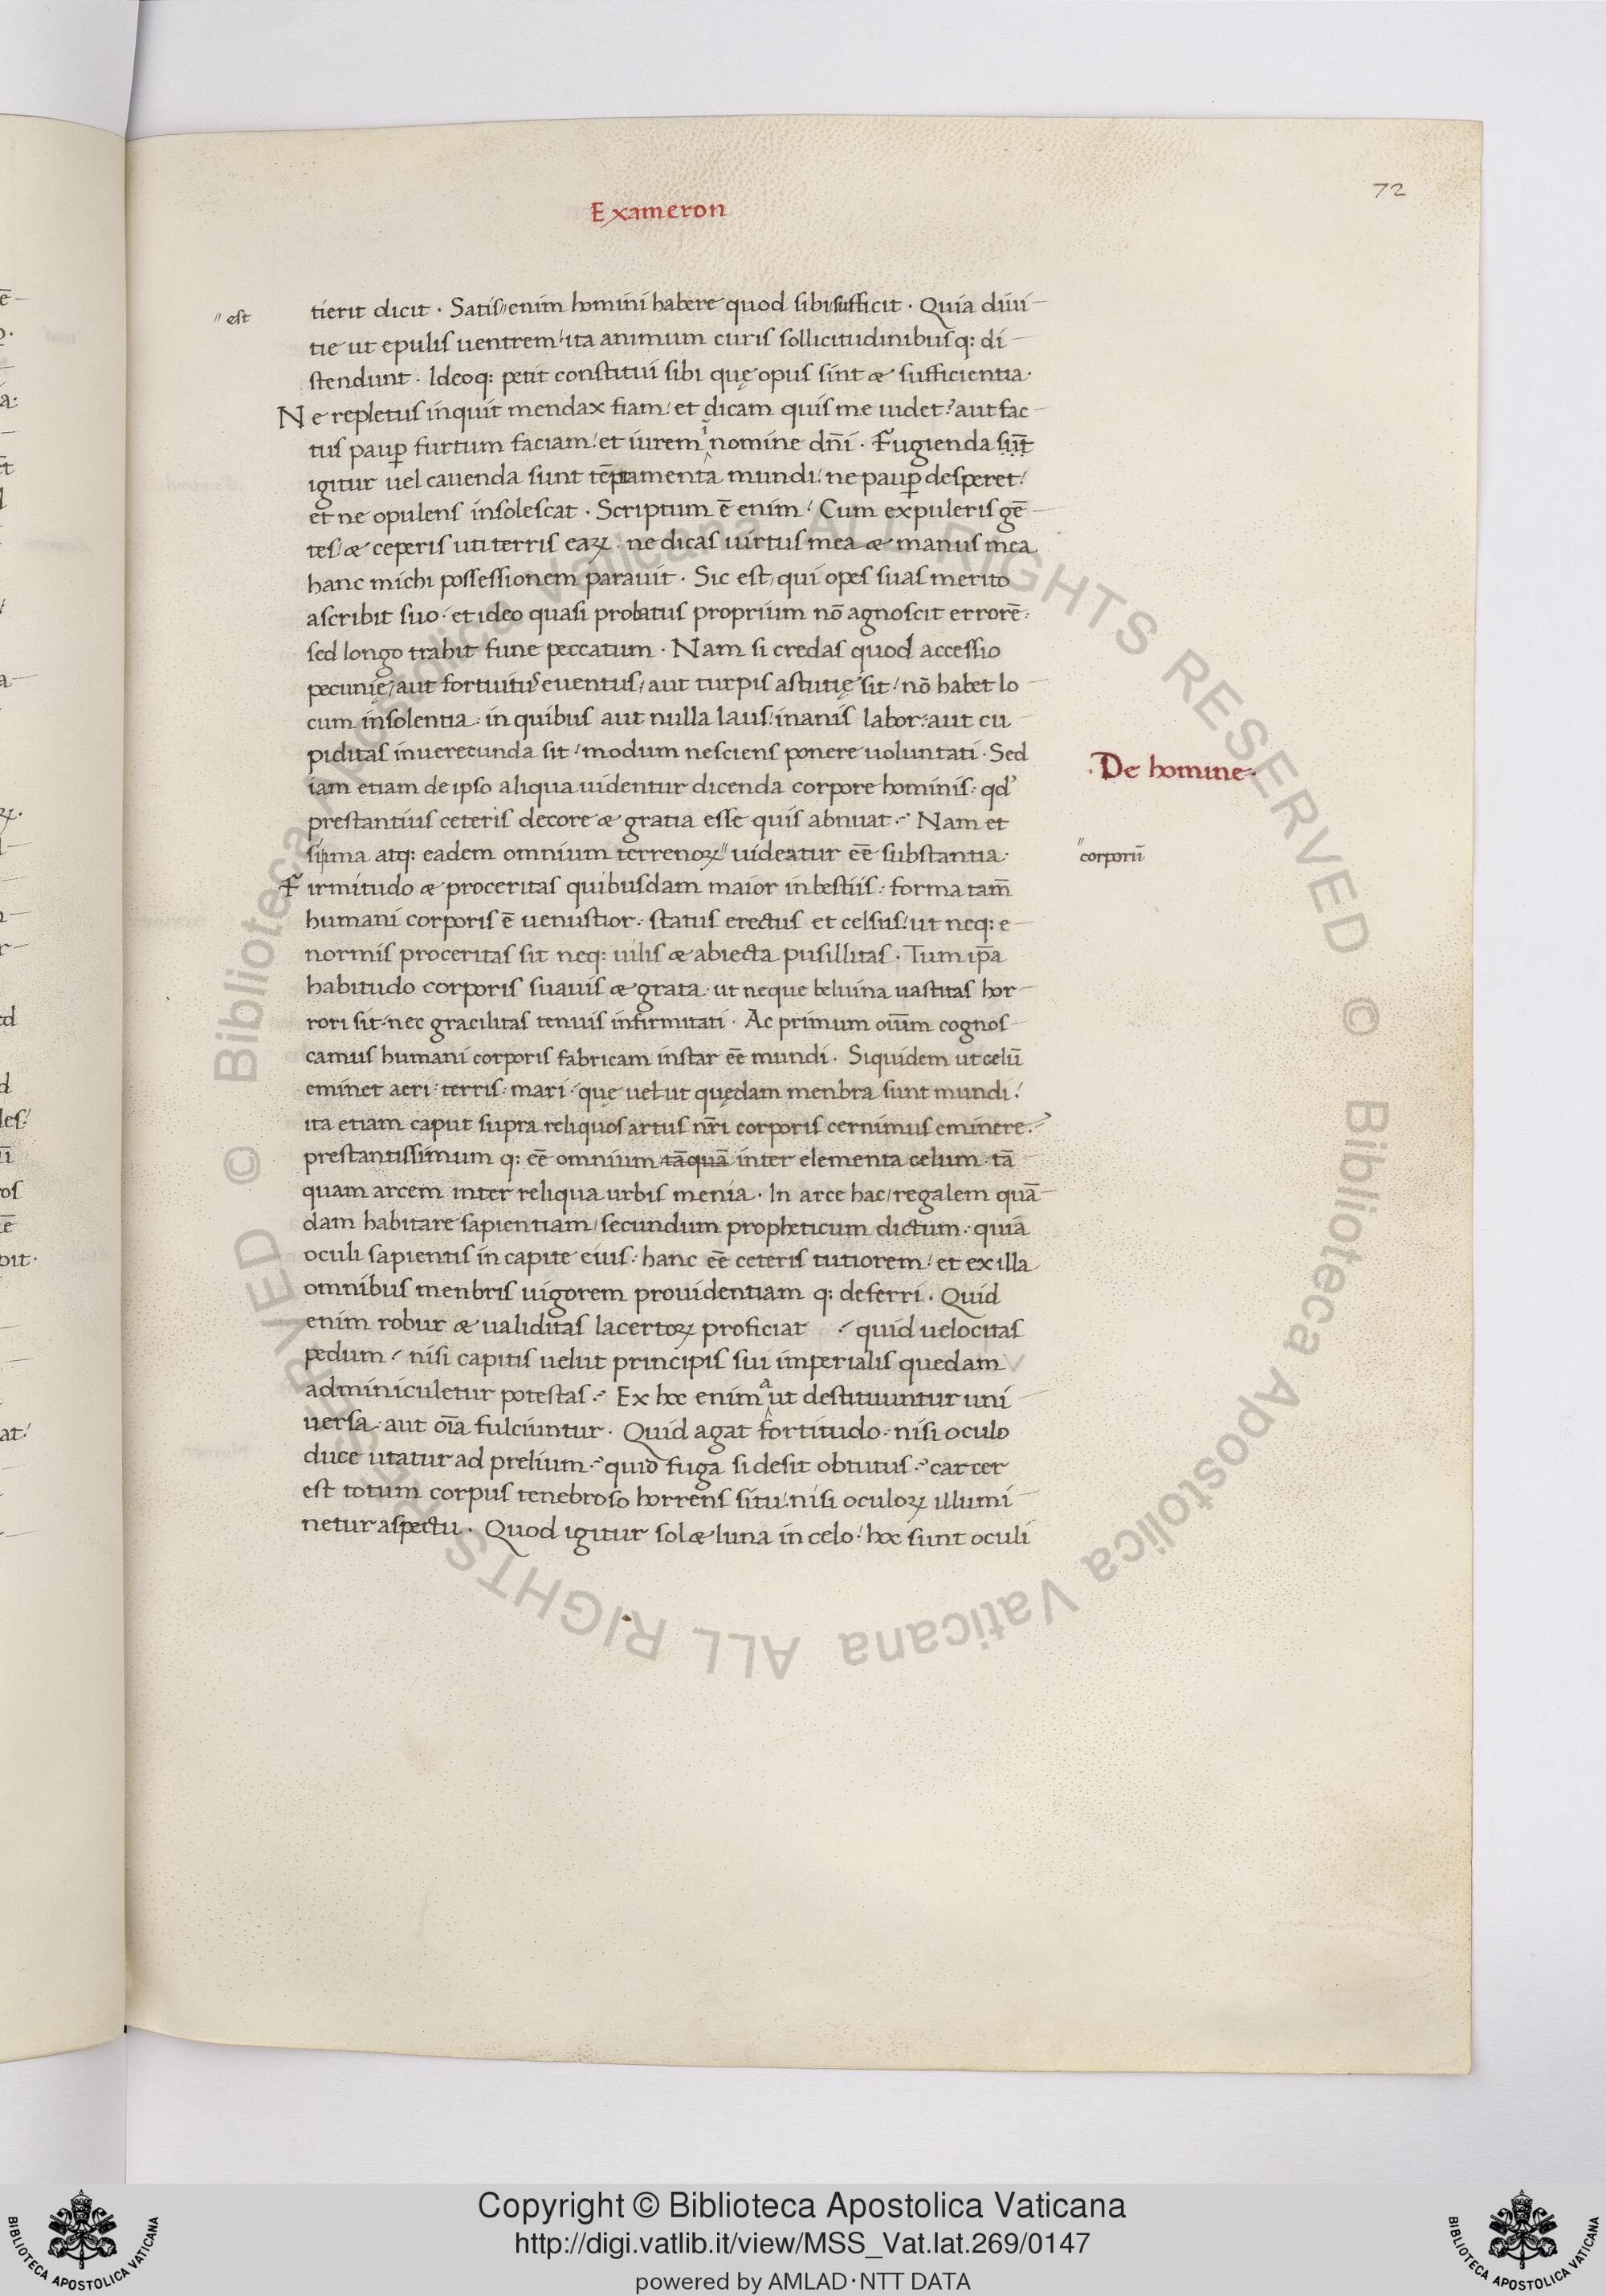 72
Exameron
tierit dicit · Satis〃enim homini habere quod sibi sufficit · Quia diui-
〃est
tie ut epulis uentrem / ita animum curis sollicitudinibusq: di-
stendunt · Ideoq: petit constitui sibi quę opus sint & sufficientia·
Ne repletus inquit mendax fiam / et dicam quis me uidet? aut fac-
tus paup̱ furtum faciam / et iurem ĩ nomine dñi · Fugienda sũt
igitur uel cauenda sunt tẽptamenta mundi / ne paup̱ desperet /
et ne opulens insolescat · Scriptum ē enim / Cum expuleris gē-
tes / & ceperis uti terris eaꝝ : ne dicas uirtus mea & manus mea
hanc michi possessionem parauit · Sic est / qui opes suas merito
ascribit suo · et ideo quasi probatus proprium nō agnoscit errorē:
sed longo trahit fune peccatum · Nam si credas quod accessio
pecunię / aut fortuitus euentus / aut turpis astutię sit / nō habet lo-
cum insolentia : in quibus aut nulla laus / inanis labor : aut cu-
piditas inuerecunda sit / modum nesciens ponere uoluntati · Sed
De homine·
iam etiam de ipso aliqua uidentur dicenda corpore hominis : qd'
prestantius ceteris decore & gratia esse quis abnuat? Nam et
si una atq: eadem omnium terrenoꝝ〃uideatur eē substantia·
〃corporū
Firmitudo & proceritas quibusdam maior in bestiis : forma tam̄
humani corporis ē uenustior : status erectus et celsus / ut neq: e-
normis proceritas sit neq: uilis & abiecta pusillitas · Tum ip̄a
habitudo corporis suauis & grata · ut neque beluina uastitas hor-
rori sit / nec gracilitas tenuis infirmitati · Ac primum oiūm cognos-
camus humani corporis fabricam instar eē mundi · Siquidem ut celū
eminet aeri : terris : mari · quę uelut quędam menbra sunt mundi /
ita etiam caput supra reliquos artus nr̄i corporis cernimus eminere·
prestantissimum q: eē omnium tāquā inter elementa celum · tā
quam arcem inter reliqua urbis menia · In arce hac / regalem quā-
dam habitare sapientiam / secundum propheticum dictum : quia
oculi sapientis in capite eius : hanc eē ceteris tutiorem / et ex illa
omnibus menbris uigorem prouidentiam q: deferri · Quid
enim robur & ualiditas lacertoꝝ proficiat / quid uelocitas
pedum / nisi capitis uelut principis sui imperialis quedam
adminiculetur potestas? Ex hoc enim aut destituuntur uni-
uersa · aut oīa fulciuntur · Quid agat fortitudo · nisi oculo
duce utatur ad prelium? quid fuga si desit obtutus? carcer
est totum corpus tenebroso horrens situ / nisi oculoꝝ illumi-
netur aspectu · Quod igitur sol & luna in celo / hoc sunt oculi
© Biblioteca Apostolica Vaticana ALL RIGHTS RESERVED © Biblioteca Apostolica Vaticana ALL RIGHTS RESERVED
Copyright © Biblioteca Apostolica Vaticana
http://digi.vatlib.it/view/MSS_Vat.lat.269/0147
powered by AMLAD·NTT DATA
BIBLIOTECA APOSTOLICA VATICANA
BIBLIOTECA APOSTOLICA VATICANA